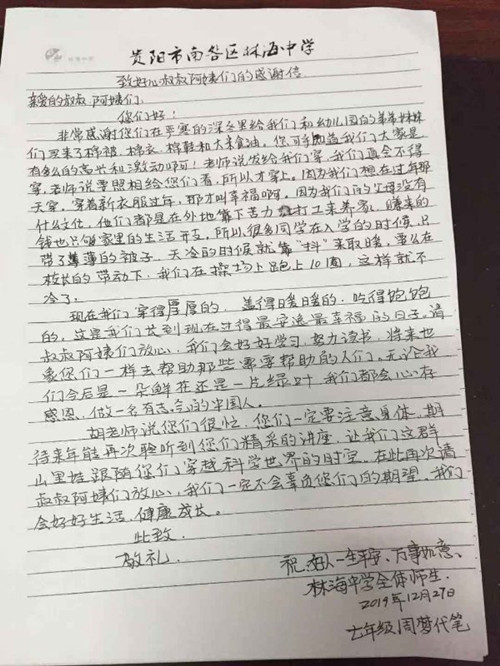 贵阳市南各区林海中学
致好心叔叔阿姨们的感谢信
亲爱的叔叔阿姨们:
您们好!
非常感谢您们在严寒的深冬里给我们和幼儿园的弟弟妹妹
们买来了棉被、棉衣、棉鞋和大米食油,您可知道我们大家是
有多么的高兴和激动啊!老师说发给我们穿,我们真舍不得
穿,老师说要照相给您们看,所以才穿上。因为我们想在过年那
天穿,穿着新衣服过年,那才叫幸福啊。因为我们的父母没有
什么文化,他们都是在外地靠下苦力打工来养家,赚来的
钱也只够家里的生活开支。所以很多同学在入学的时候,只
带了单薄的被子,天冷的时候就靠“抖”来取暖,要么在
校长的带动下,我们在操场上跑上10圈,这样就不
冷了。
现在我们穿得厚厚的、盖得暖暖的、吃得饱饱
的,这是我们长到现在过得最安逸最幸福的日子。请
叔叔阿姨们放心,我们会好好学习,努力读书,将来也
象您们一样去帮助那些需要帮助的人们,无论我
们今后是一朵鲜花还是一片绿叶,我们都会心存
感恩,做一名有志气的中国人。
胡老师说您们很忙,您们一定要注意身体,期
待来年能再次聆听到您们精采的讲座,让我们这群
山里娃跟随您们穿越科学世界的时空。在此再次请
叔叔阿姨们放心,我们一定不会辜负您们的期望,我们
会好好生活,健康成长。
此致
敬礼
祝:好人一生平安、万事如意、
林海中学全体师生.
2019年12月27日
七年级周梦代笔